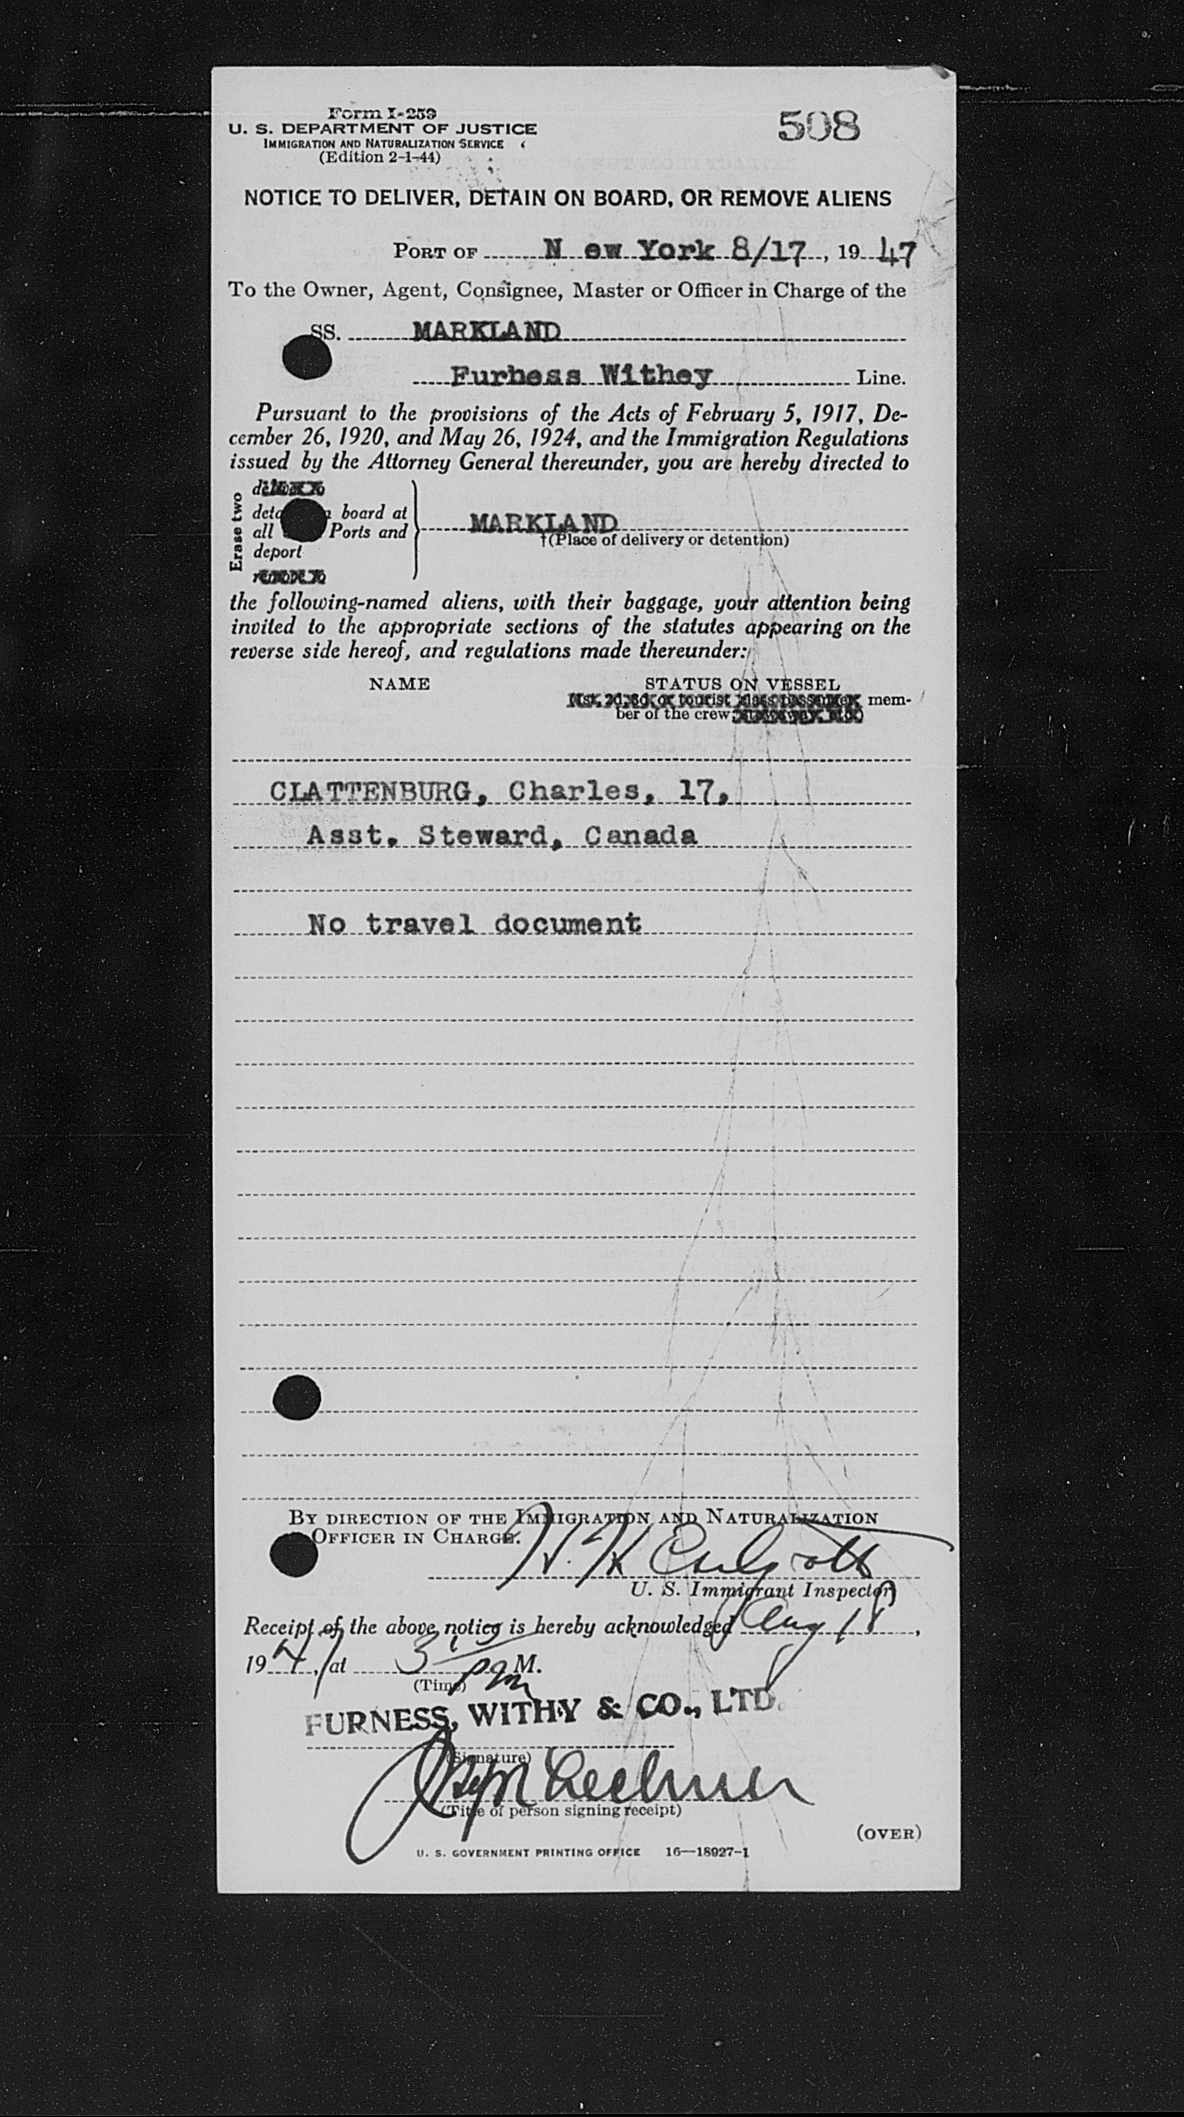 Form I-259
U. S. DEPARTMENT OF JUSTICE
IMMIGRATION AND NATURALIZATION SERVICE
(Edition 2-1-44)
508
NOTICE TO DELIVER, DETAIN ON BOARD, OR REMOVE ALIENS
PORT OF N ew York 8/17, 1947
To the Owner, Agent, Consignee, Master or Officer in Charge of the
SS. MARKLAND
Furness Withey Line.
Pursuant to the provisions of the Acts of February 5, 1917, De-
cember 26, 1920, and May 26, 1924, and the Immigration Regulations
issued by the Attorney General thereunder, you are hereby directed to
Erase two
board at
all Ports and
deport
MARKLAND
†(Place of delivery or detention)
the following-named aliens, with their baggage, your attention being
invited to the appropriate sections of the statutes appearing on the
reverse side hereof, and regulations made thereunder:
NAME STATUS ON VESSEL
1st, 2d, 3d, or tourist class passenger, mem-
ber of the crew,
CLATTENBURG, Charles, 17,
Asst. Steward, Canada
No travel document
BY DIRECTION OF THE IMMIGRATION AND NATURALIZATION
OFFICER IN CHARGE.
U. S. Immigrant Inspector
Receipt of the above notice is hereby acknowledged Aug 18,
1947, at 3 pm M.
(Time)
FURNESS, WITHY & CO., LTD.
(Signature)
(Title of person signing receipt)
(OVER)
U. S. GOVERNMENT PRINTING OFFICE 16—18927-1